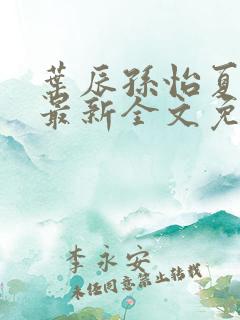 葉辰孫怡夏
最新全文免
李永安
未经同意禁止转载